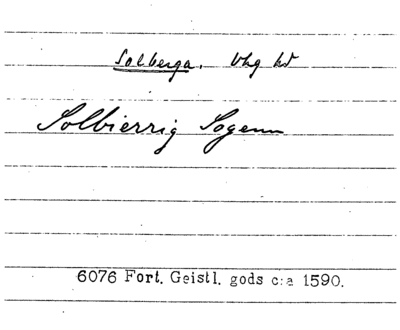 Solberga. Vhg hd
Solbierrig Sogenn
6076 Fort. Geistl. gods c:a 1590.